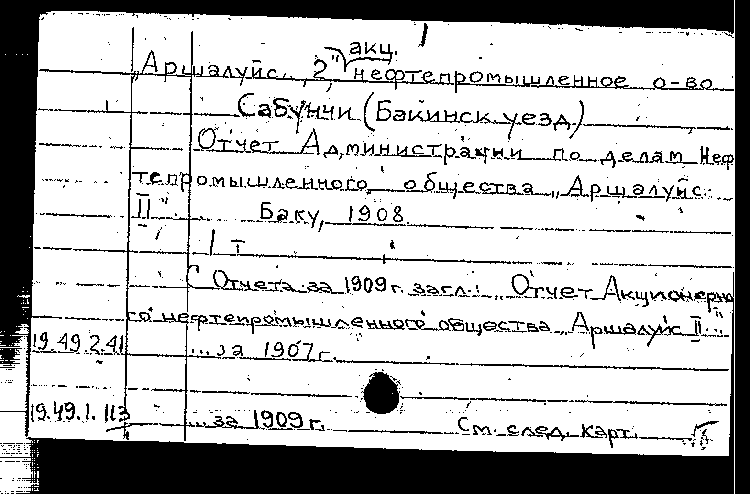 акц.
„Аршалуйс 2" нефтепромышленное о-во
Сабунчи (Бакинск. уезд.)
Отчет Администрации по делам Неф
тепромышленного общества „Аршалуйс
II" Баку, 1908.
1 т
С Отчета за 1909 г. загл.: „Отчет Акционерно
го нефтепромышленного общества „Аршалуйс II"...
19.49.2.41 ... за 1907 г.
19.49.1.113 ... за 1909 г. См. след. карт.